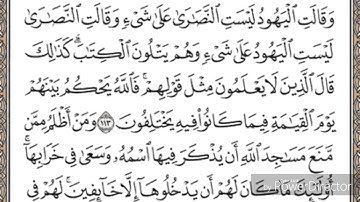 وَقَالَتِ ٱلْيَهُودُ لَيْسَتِ ٱلنَّصَٰرَىٰ عَلَىٰ شَىْءٍ وَقَالَتِ ٱلنَّصَٰرَىٰ
لَيْسَتِ ٱلْيَهُودُ عَلَىٰ شَىْءٍ وَهُمْ يَتْلُونَ ٱلْكِتَٰبَ ۗ كَذَٰلِكَ
قَالَ ٱلَّذِينَ لَا يَعْلَمُونَ مِثْلَ قَوْلِهِمْ ۚ فَٱللَّهُ يَحْكُمُ بَيْنَهُمْ
يَوْمَ ٱلْقِيَٰمَةِ فِيمَا كَانُوا۟ فِيهِ يَخْتَلِفُونَ ١١٣ وَمَنْ أَظْلَمُ مِمَّن
مَّنَعَ مَسَٰجِدَ ٱللَّهِ أَن يُذْكَرَ فِيهَا ٱسْمُهُۥ وَسَعَىٰ فِى خَرَابِهَآ ۚ
أُو۟لَٰٓئِكَ مَا كَانَ لَهُمْ أَن يَدْخُلُوهَآ إِلَّا خَآئِفِينَ ۚ لَهُمْ فِى
PowerDirector